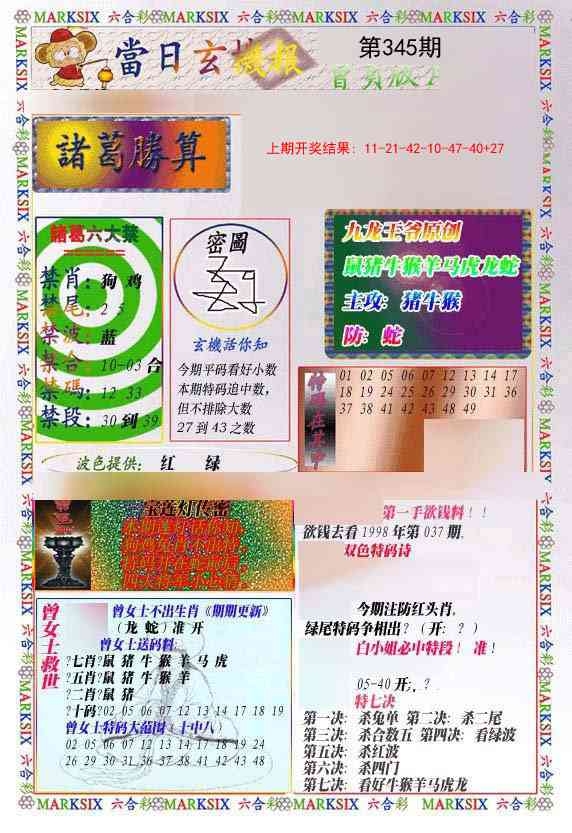 MARKSIX 六合彩 MARKSIX 六合彩 MARKSIX 六合彩 MARKSIX 六合彩 MARKSIX 六合彩
當日玄機報
第345期
諸葛勝算
上期开奖结果：11-21-42-10-47-40+27
諸葛六大禁
禁肖：狗 鸡
禁尾：2 5
禁波：蓝
禁合：10-03 合
禁碼：12 33
禁段：30 到 39
密圖
玄機活你知
今期平码看好小数
本期特码追中数，
但不排除大数
27 到 43 之数
九龙王爷原创
鼠猪牛猴羊马虎龙蛇
主攻：猪牛猴
防：蛇
特碼在其中
01 02 05 06 07 12 13 14 17
18 19 24 25 26 29 30 31 36
37 38 41 42 43 48 49
波色提供： 红 绿
宝莲灯传密
第一手欲钱料！！
欲钱去看 1998 年第 037 期。
双色特码诗
今期注防红头肖。
绿尾特码争相出？（开：？）
白小姐必中特段！准！
05-40 开：？
特七决
第一决：杀兔单 第二决：杀二尾
第三决：杀合数五 第四决：看绿波
第五决：杀红波
第六决：杀四门
第七决：看好牛猴羊马虎龙
曾女士救世
曾女士不出生肖《期期更新》
（龙 蛇）准 开
曾女士送码料：
?七肖?鼠 猪 牛 猴 羊 马 虎
?五肖?鼠 猪 牛 猴 羊
?二肖?鼠 猪
?十码?02 05 06 07 12 13 14 17 18 19
曾女士特码大范围（十中八）
02 05 06 07 12 13 14 17 18 19 24
26 29 30 31 36 37 38 41 42 43 48
MARKSIX 六合彩 MARKSIX 六合彩 MARKSIX 六合彩 MARKSIX 六合彩 MARKSIX 六合彩